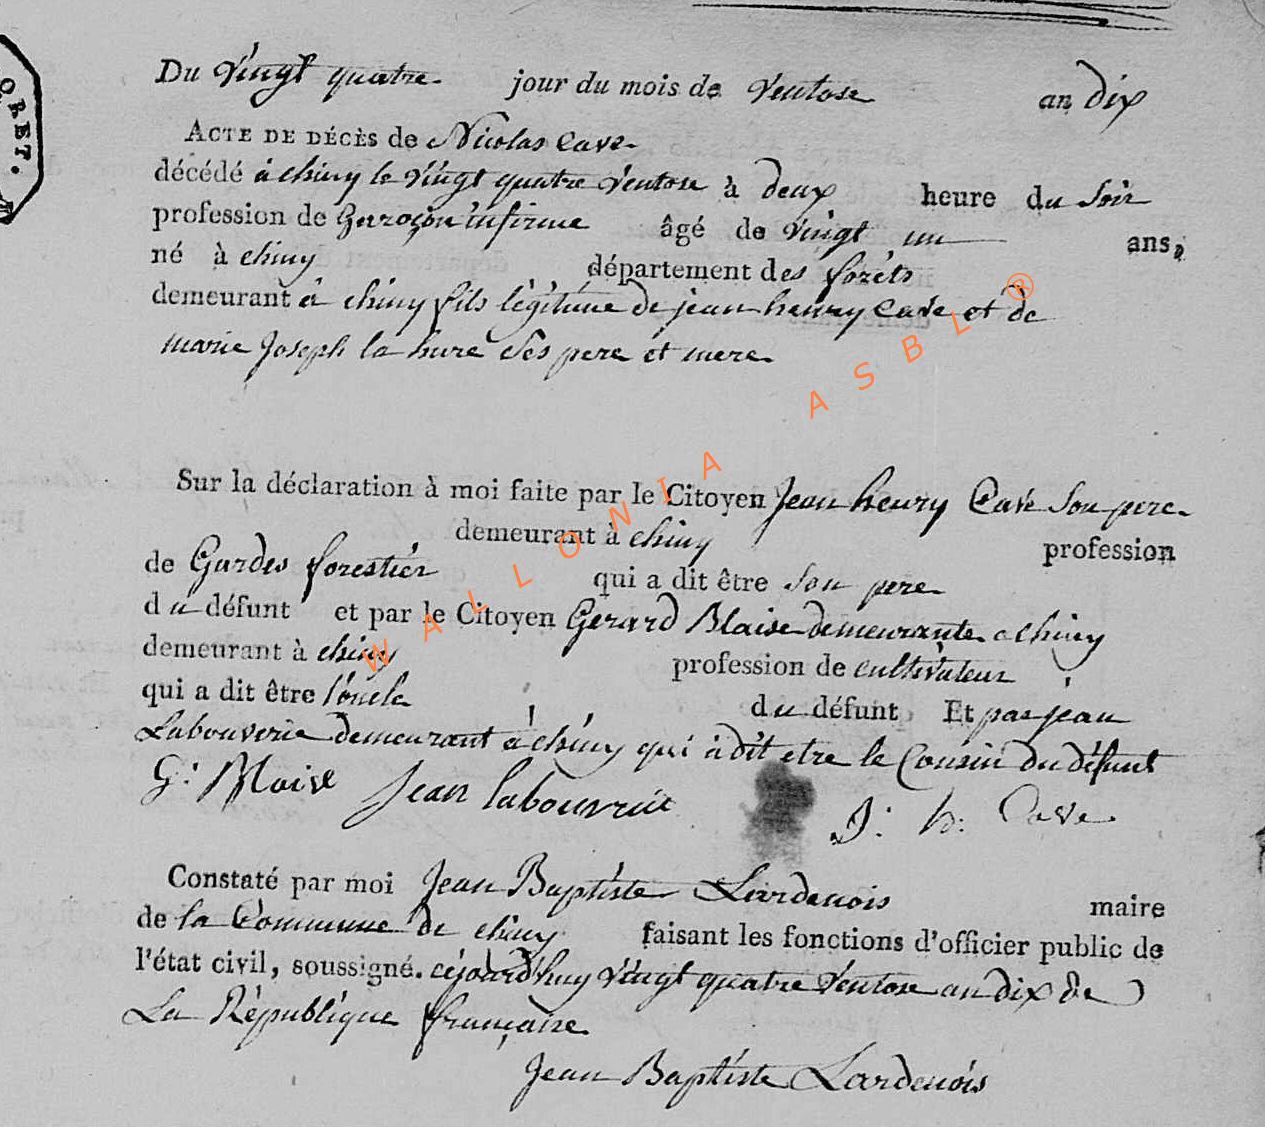 ORET.
Du vingt quatre jour du mois de ventose an dix
ACTE DE DÉCÈS de Nicolas Cave
décédé à chiny le vingt quatre ventose à deux heure du soir
profession de Garoçon infirme âgé de vingt un ans,
né à chiny département des forêts
demeurant à chiny fils légitime de jean henry Cave et de
marie Joseph la hure Ses pere et mere
Sur la déclaration à moi faite par le Citoyen Jean henry Cave Son pere
demeurant à chiny profession
de Gardes forestier qui a dit être son pere
du défunt et par le Citoyen Gerard Blaise demeurante a chiny
demeurant à chiny profession de cultivateur
qui a dit être l'oncle du défunt Et par jean
Labouverie demeurant à chiny qui à dit etre le Cousin du défunt
G: Blaise Jean labouverie J: h: Cave
Constaté par moi Jean Baptiste Lardenois maire
de la Commune de chiny faisant les fonctions d'officier public de
l'état civil, soussigné. cejourd'huy vingt quatre ventose an dix de
La République française
Jean Baptiste Lardenois
WALLONIA ASBL ®